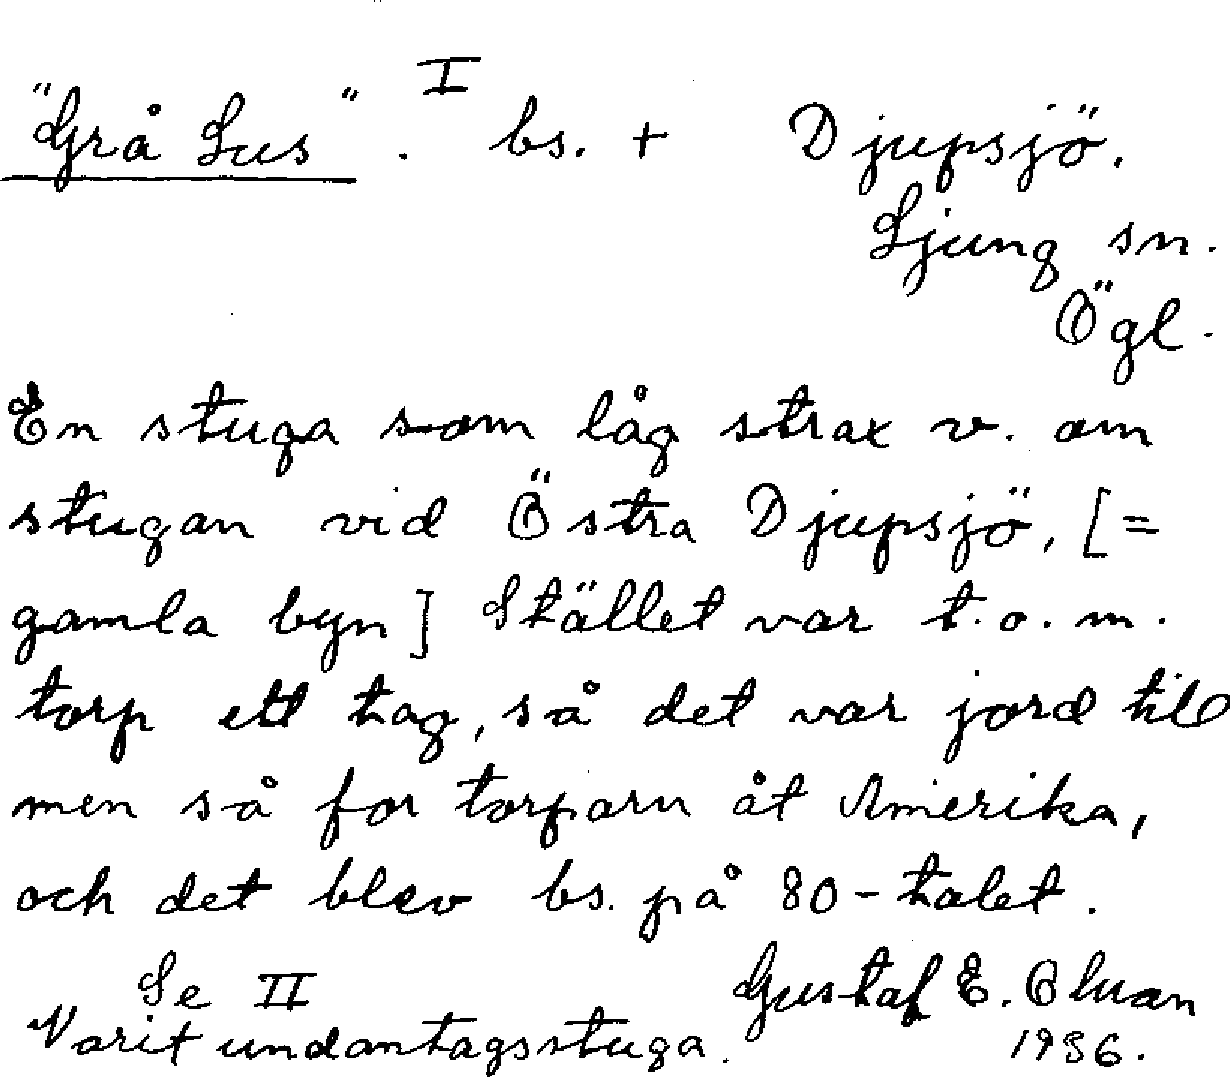 "Grå Lus". I bs. + Djupsjö.
Ljung sn.
Ögl.
En stuga som låg strax v. om
stugan vid Östra Djupsjö, [=
gamla byn] Stället var t.o.m.
torp ett tag, så det var jord till
men så for torparn åt Amerika,
och det blev bs. på 80-talet.
Se II Gustaf E.
Varit undantagsstuga. 1936.